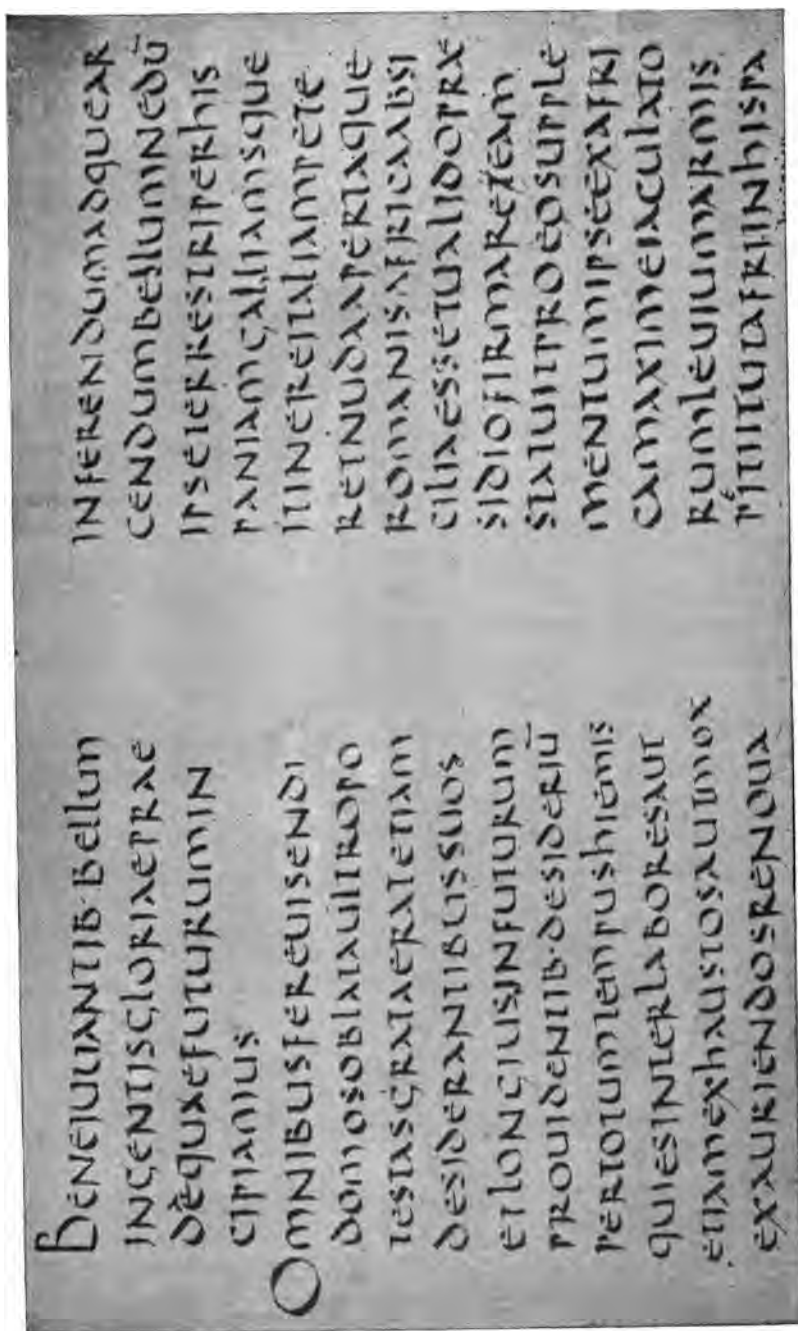 BENEIUUANTIB·BELLUM
INGENTISGLORIAEPRAE
DEQUAEFUTURUMIN
CIPIAMUS
OMNIBUSFEREUISENDI
DOMOSOBLATAULTROPO
TESTASGRATAERATETIAM
DESIDERANTIBUSSUOS
ETLONGIUSINFUTURUM
PROUIDENTIB·DESIDERIŪ
PERTOTUMTEMPUSHIEMIS
QUIESINTERLABORESAUT
ETIAMEXHAUSTOSAUTMOX
EXAURIENDOSRENOUA
INFERENDUMADQUEAR
CENDUMBELLUMNEDŪ
IPSETERRESTRIPERHIS
PANIAMGALLIAMSQUE
ITINEREITALIAMPETE
RETNUDAAPERTAQUE
ROMANISAFRICAABSI
CILIAESSETUALIDOPRÆ
SIDIOFIRMARETEAM
STATUITPROEOSUPPLE
MENTUMIPSEEXAFRI
CAMAXIMEIACULATO
RUMLEUIUMARMIS
PETIITUTAFRIINHISPA